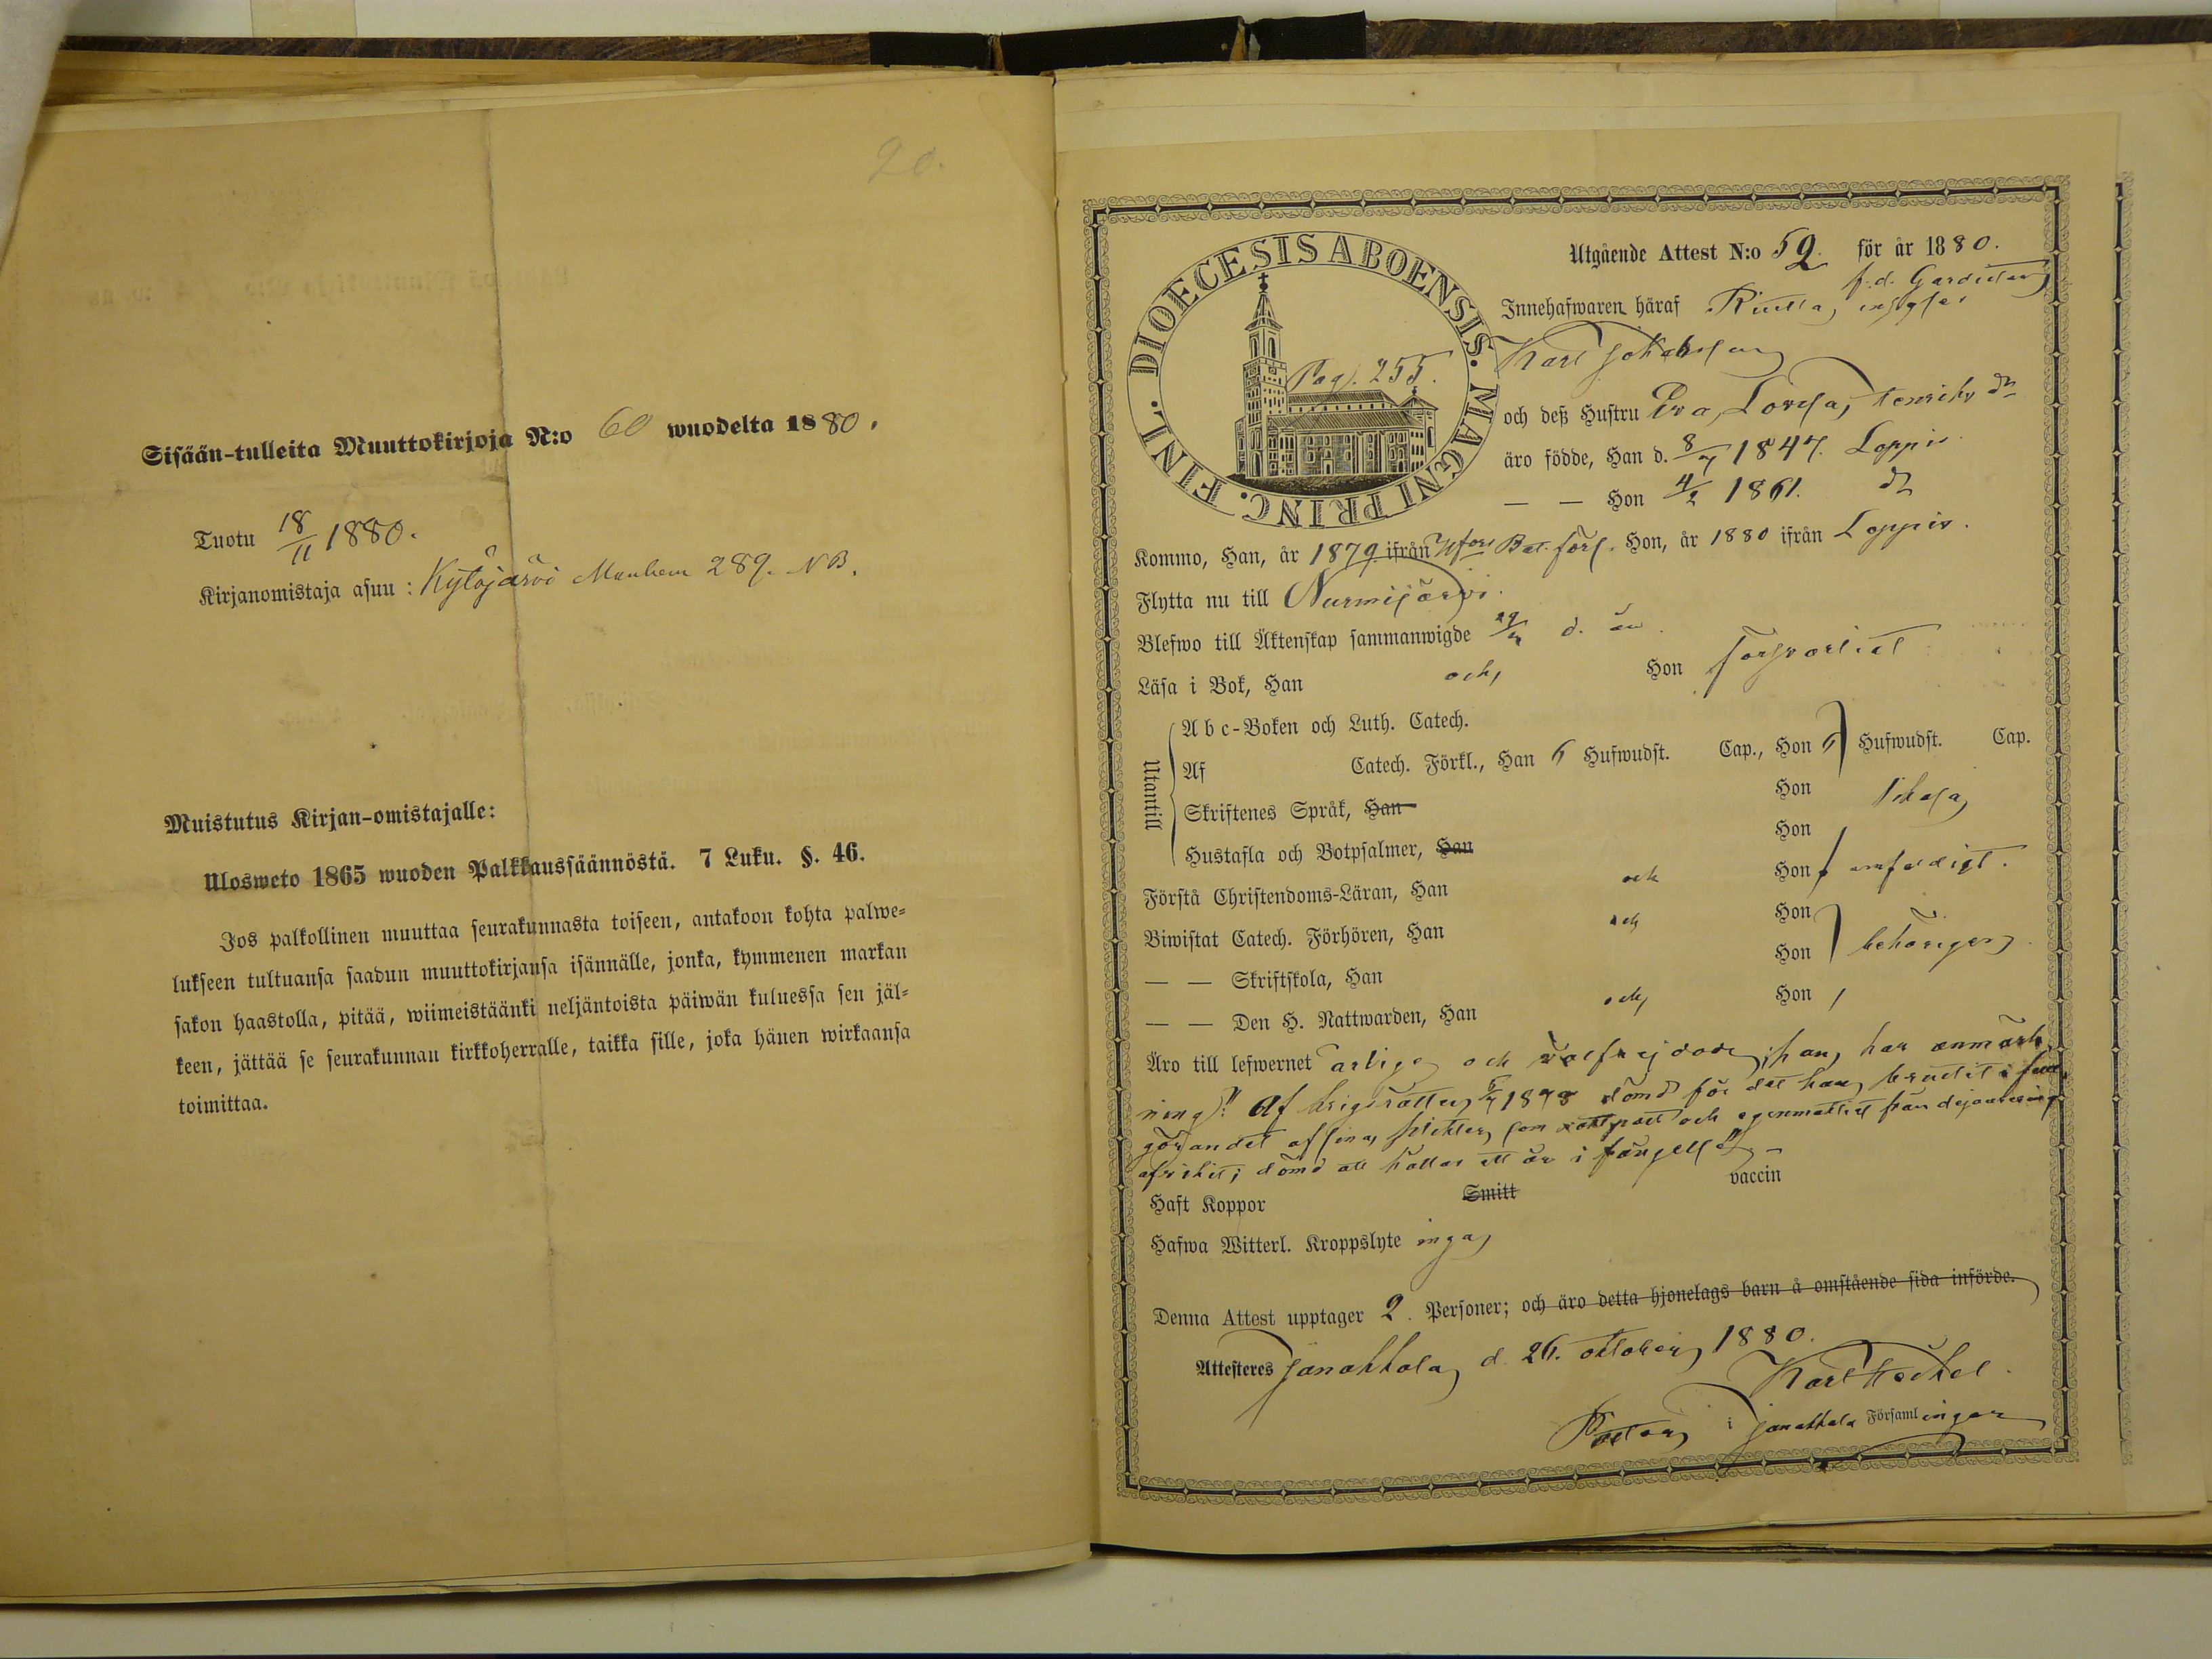 20.
Sisään-tulleita Muuttokirjoja N:o 60 wuodelta 1880.
Tuotu 18/11 1880.
Kirjanomistaja asuu: Kytäjärvi Manhem 289. NB.
Muistutus Kirjan-omistajalle:
Ulosweto 1865 wuoden Palkkaussäännöstä. 7 Luku. §. 46.
Jos palkollinen muuttaa seurakunnasta toiseen, antakoon kohta palwe=
lukseen tultuansa saadun muuttokirjansa isännälle, jonka, kymmenen markan
sakon haastolla, pitää, wiimeistäänki neljäntoista päiwän kuluessa sen jäl=
keen, jättää se seurakunnan kirkkoherralle, taikka sille, joka hänen wirkaansa
toimittaa.
DIOECESIS ABOENSIS. MAGNI PRINC. FINL.
Pag. 255.
Utgående Attest N:o 52. för år 1880.
f.d. Gardisten
Innehafwaren häraf
Karl Johansson
och deß Hustru Eva Lovisa Henriks dr
äro födde, Han d. 8/7 1847. Loppis
— — Hon 4/2 1861. dr
Kommo, Han, år 1879 ifrån Bat. förs. Hon, år 1880 ifrån Loppis.
Flytta nu till Nurmijärvi.
Blefwo till Äktenskap sammanwigde d. åu
Läsa i Bok, Han och Hon försvarligt
Utantill
Abc-Boken och Luth. Catech.
Af Catech. Förkl., Han 6 Hufwudst. Cap., Hon 6 Hufwudst. Cap.
Skriftenes Språk, Han Hon
Hustafla och Botpsalmer, Han Hon
Förstå Christendoms-Läran, Han och Hon enfaldigt.
Biwistat Catech. Förhören, Han och Hon
— — Skriftskola, Han Hon behörigen
— — Den H. Nattwarden, Han och Hon
Äro till lefwernet ärlige och välfrejdade; han har anmärk
ning: "Af krigsrätten 1878 dömd för det han brustit i full
görandet af sina plikter som och egenmäktigt från dejourering
afvikit; dömd att hållas ett år i fängelse" —
Haft Koppor Smitt vaccin
Hafwa Witterl. Kroppslyte inga
Denna Attest upptager 2. Personer; och äro detta hjonelags barn å omstående sida införde.
Attesteres Janakkala d. 26. oktober 1880.
Pastor i Janakkala Församlingar